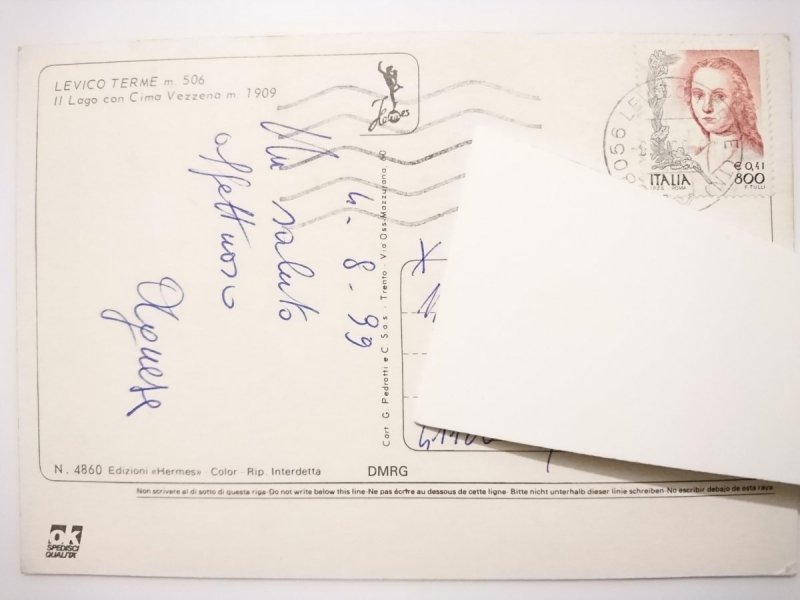 LEVICO TERME m. 506
Il Lago con Cima Vezzena m. 1909
Hermes
ITALIA
€ 0,41
800
F. TULLI
38056 LE
4-8-99
Un saluto
affettuoso
Agnese
Cart. G. Pedrotti e C. S.a.s. - Trento - Via Oss-Mazzurana, 60
41100
N. 4860 Edizioni «Hermes» - Color - Rip. Interdetta
DMRG
Non scrivere al di sotto di questa riga-Do not write below this line-Ne pas écrire au dessous de cette ligne- Bitte nicht unterhalb dieser linie schreiben-No escribir debajo de esta raya
ok
SPEDISCI
QUALITÀ